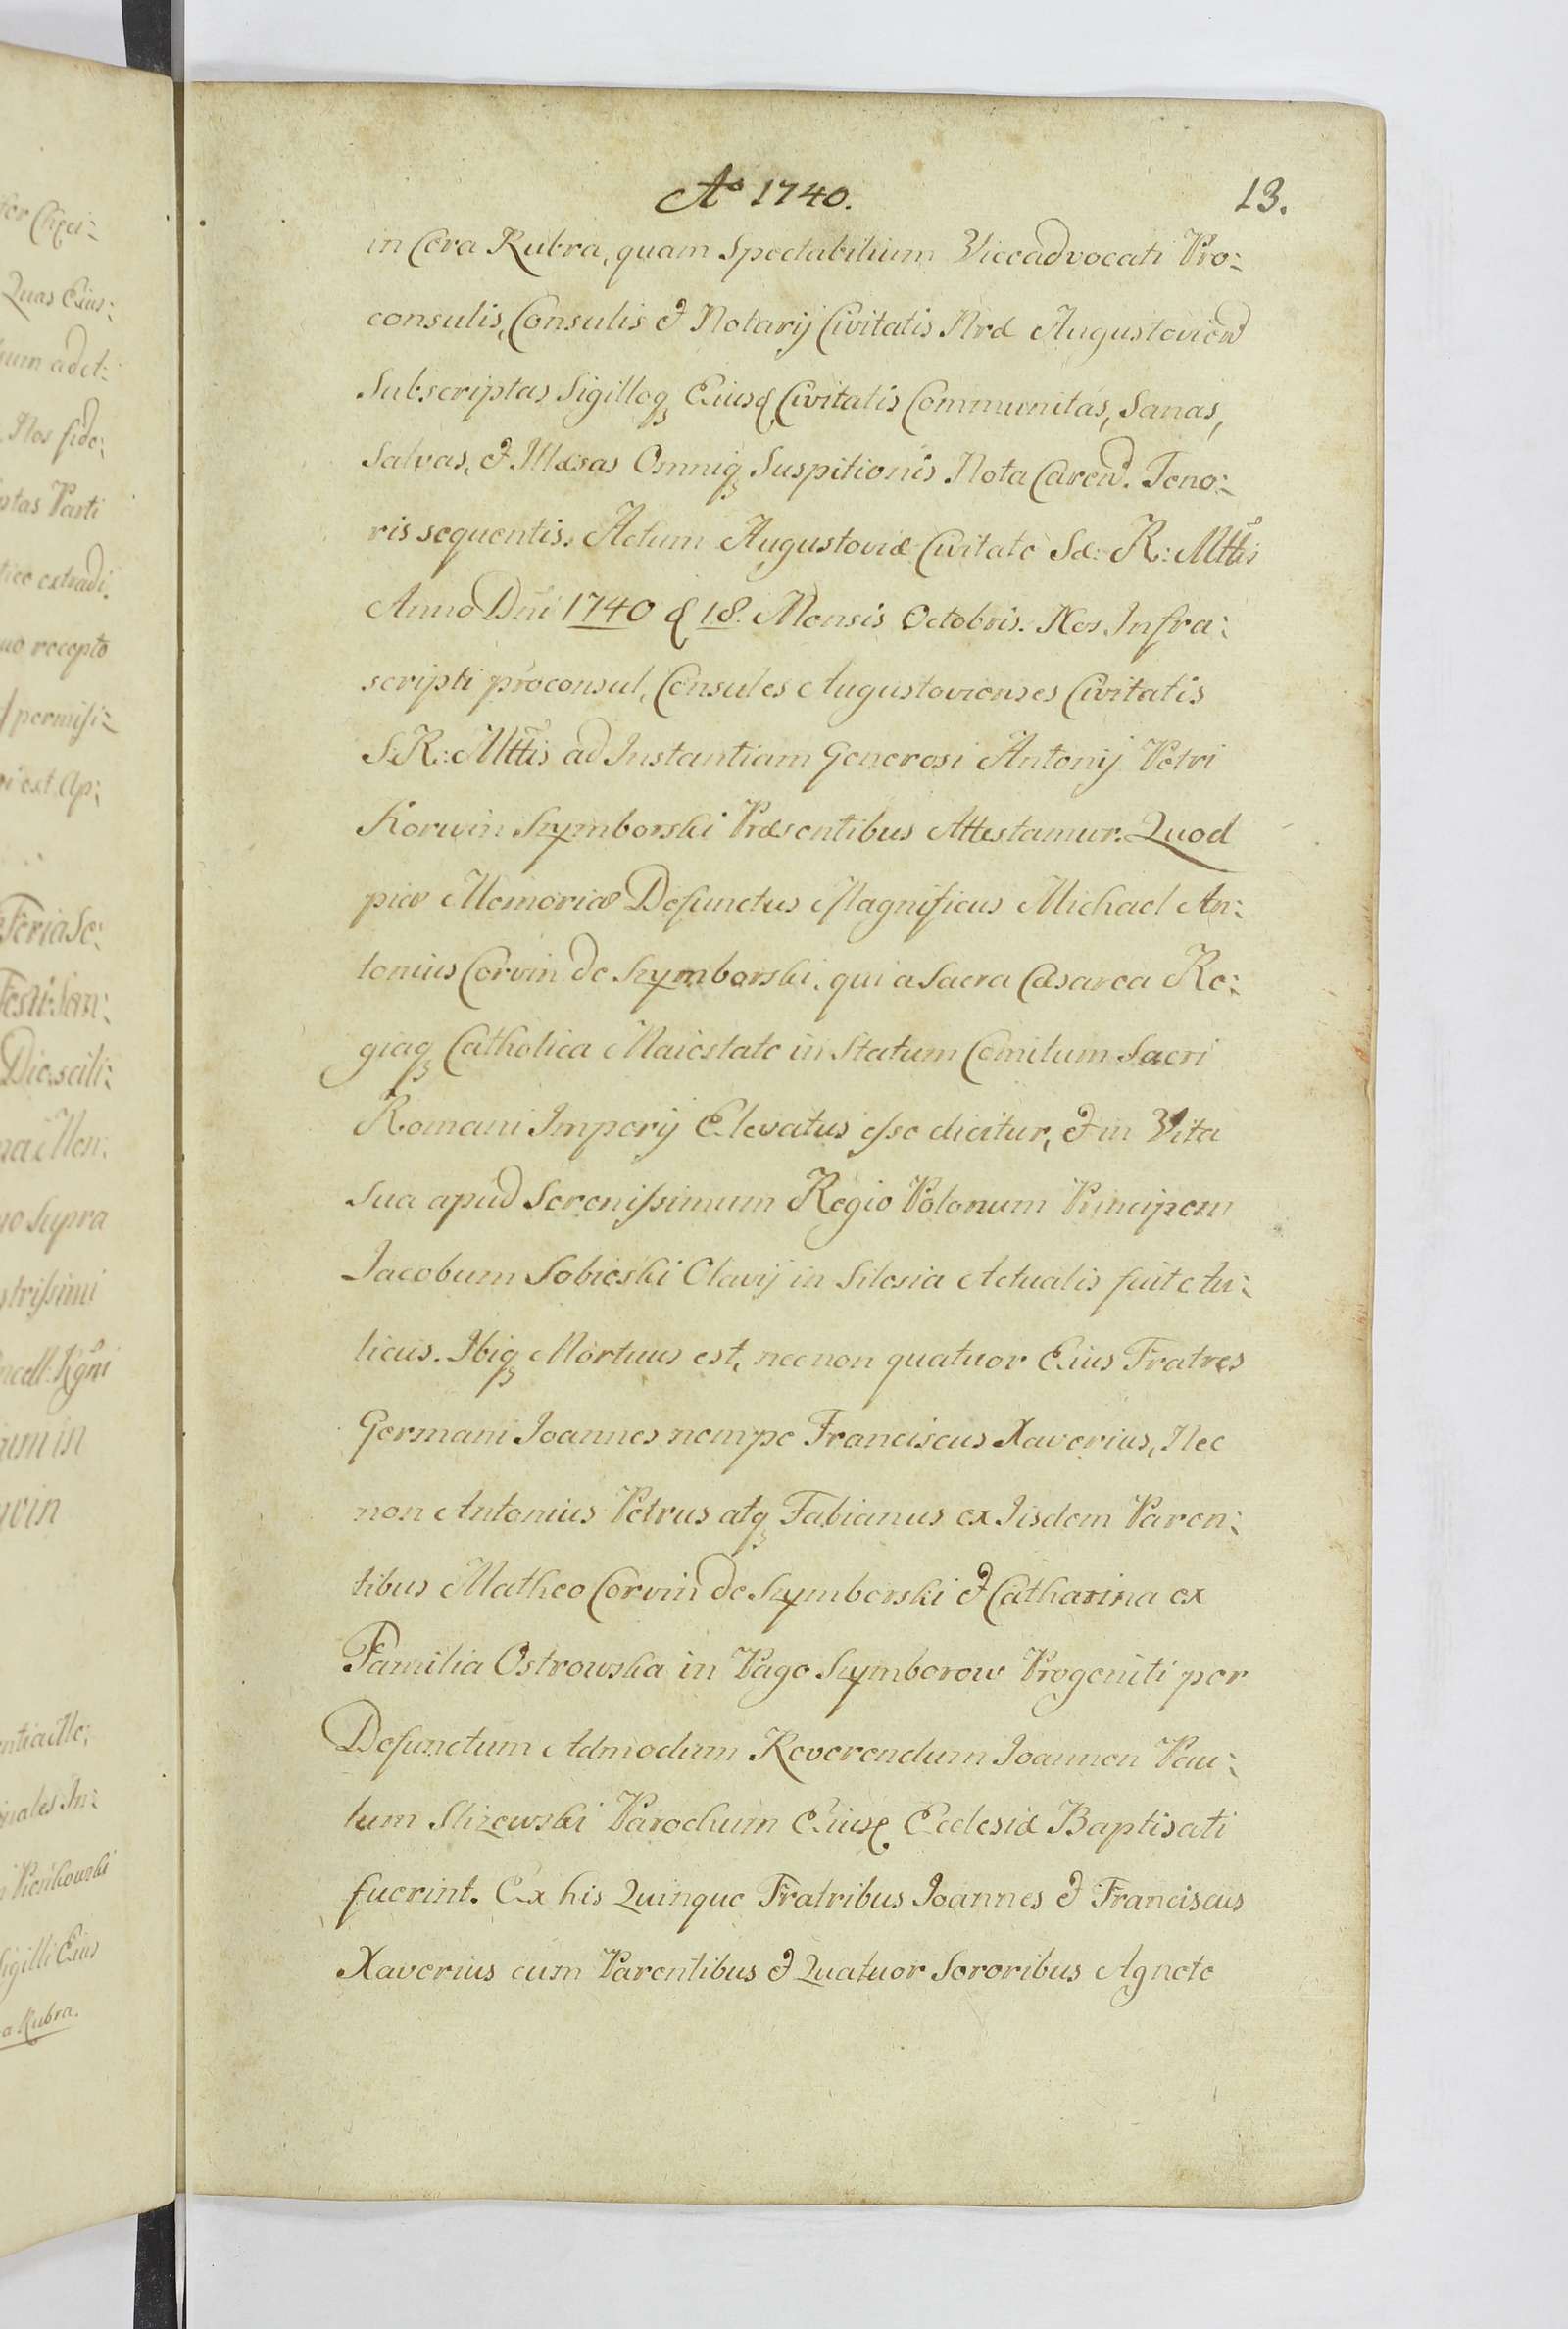 Ao 1740.
13.
in Cera Rubra, quam Spectabilium Viceadvocati Pro:
consulis, Consulis & Notarij Civitatis Nrd Augustovien
Subscriptas Sigilloq Eiusd Civitatis Communitas, Sanas,
Salvas, & Illæsas Omniq Suspitionis Nota Caren. Teno:
ris sequentis. Actum Augustoviæ Civitate Sæ: R: Mttis
Anno Dni 1740 d 18. Mensis Octobris. Nos Infra:
scripti proconsul, Consules Augustovienses Civitatis
S: R: Mttis ad Instantiam Generosi Antonij Petri
Korwin Szymborski Præsentibus Attestamur. Quod
piæ Memoriæ Defunctus Magnificus Michael An:
tonius Corvin de Szymborski, qui a Sacra Cæsarea Re:
giaq Catholica Maiestate in Statum Comitum Sacri
Romani Imperij Elevatus esse dicitur, & in Vita
Sua apud Serenissimum Regio Polonum Principem
Jacobum Sobieski Olavij in Silesia Actualis fuit Au:
licus. Ibiq Mortuus est, necnon quatuor Eius Fratres
Germani Joannes nempe Franciscus Xaverius, Nec
non Antonius Petrus atq Fabianus ex Iisdem Paren:
tibus Matheo Corvin de Szymborski & Catharina ex
Familia Ostrowska in Pago Szymborow Progeniti per
Defunctum Admodum Reverendum Joannen Pau:
lum Slizewski Parochum Eiusd Ecclesiæ Baptisati
fuerint. Ex his Quinque Fratribus Joannes & Franciscus
Xaverius cum Parentibus & Quatuor Sororibus Agnete